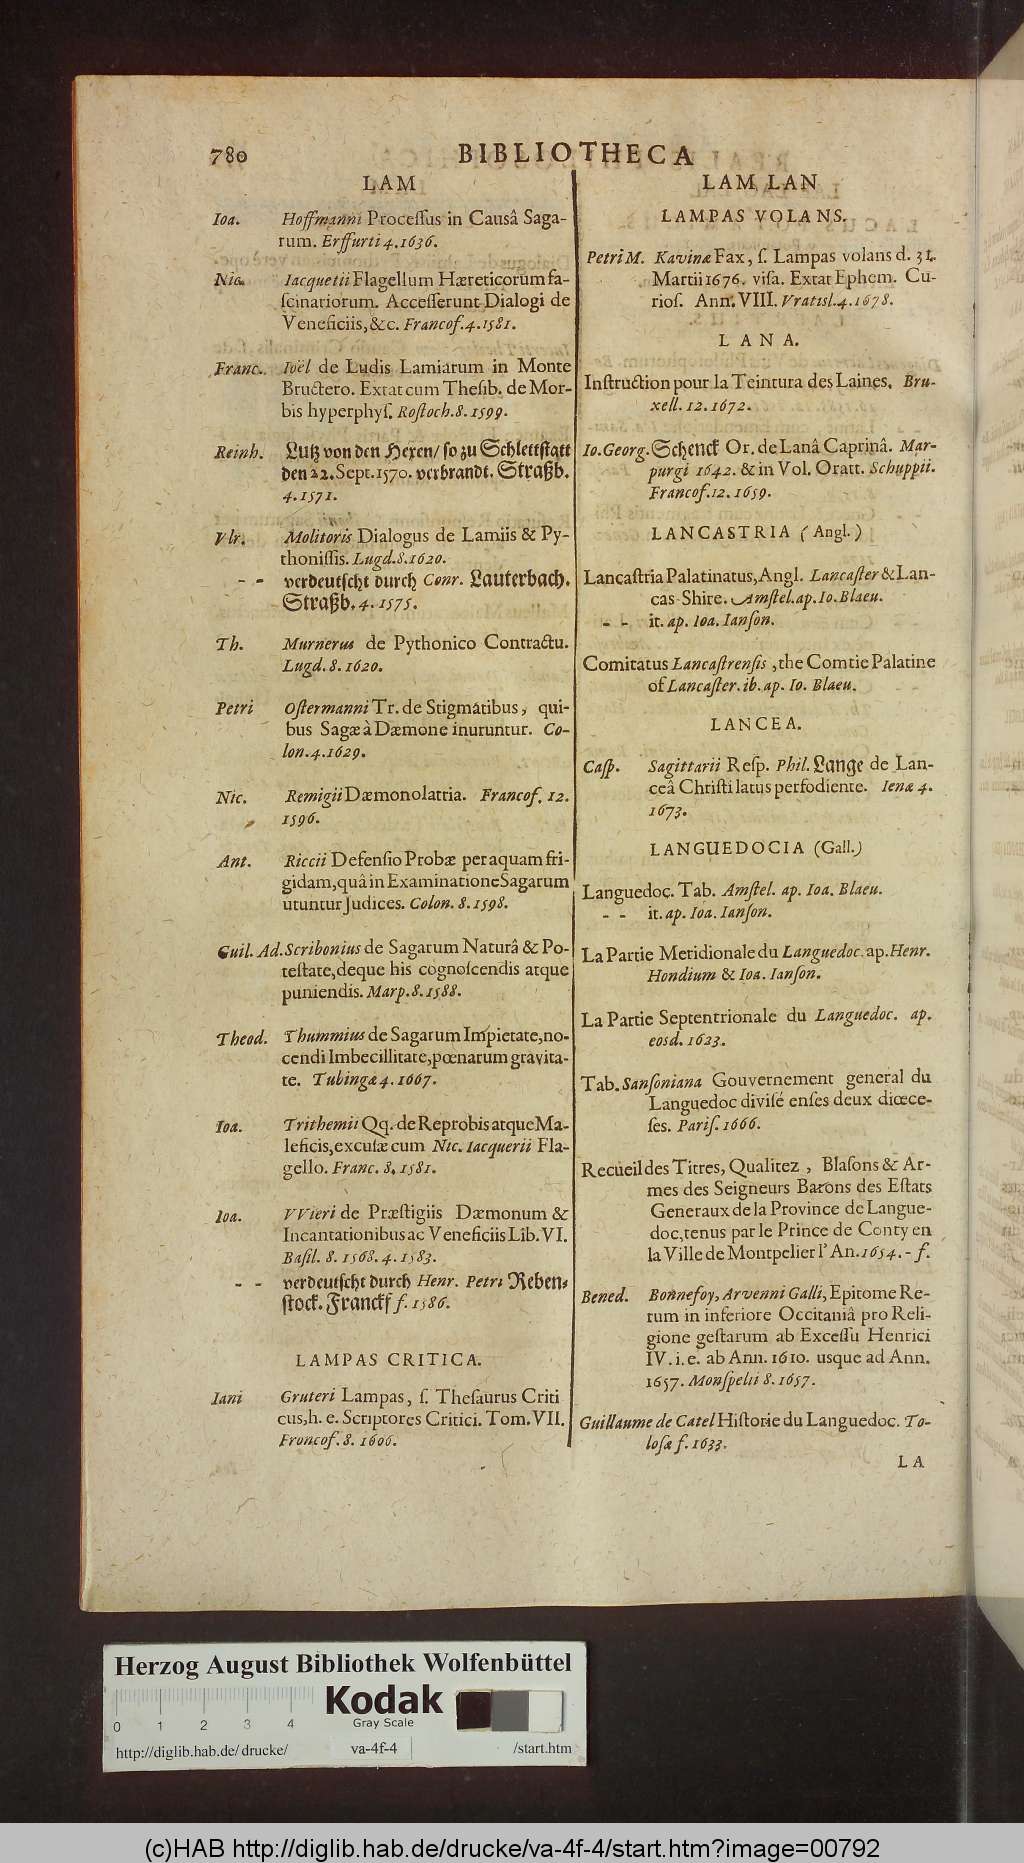 780 BIBLIOTHECA
LAM
Ioa. Hoffmanni Proceſſus in Causâ Saga-
rum. Erffurti 4. 1636.
Nic. Iacquetii Flagellum Hæreticorum fa-
ſcinatiorum. Acceſſerunt Dialogi de
Veneficiis, &c. Francof. 4. 1581.
Franc. Ioël de Ludis Lamiarum in Monte
Bructero. Extat cum Theſib. de Mor-
bis hyperphyſ. Roſtoch. 8. 1599.
Reinh. Lutz von den Hexen/ ſo zu Schlettſtatt
den 22. Sept. 1570. verbrandt. Straßb.
4. 1571.
Vlr. Molitoris Dialogus de Lamiis & Py-
thoniſſis. Lugd. 8. 1620.
- - verdeutſcht durch Conr. Lauterbach.
Straßb. 4. 1575.
Th. Murnerus de Pythonico Contractu.
Lugd. 8. 1620.
Petri Oſtermanni Tr. de Stigmatibus, qui-
bus Sagæ à Dæmone inuruntur. Co-
lon. 4. 1629.
Nic. Remigii Dæmonolatria. Francof. 12.
1596.
Ant. Riccii Defenſio Probæ per aquam fri-
gidam, quâ in Examinatione Sagarum
utuntur Judices. Colon. 8. 1598.
Guil. Ad. Scribonius de Sagarum Naturâ & Po-
teſtate, deque his cognoſcendis atque
puniendis. Marp. 8. 1588.
Theod. Thummius de Sagarum Impietate, no-
cendi Imbecillitate, pœnarum gravita-
te. Tubingæ 4. 1667.
Ioa. Trithemii Qq. de Reprobis atque Ma-
leficis, excuſæ cum Nic. Iacquerii Fla-
gello. Franc. 8. 1581.
Ioa. VVieri de Præſtigiis Dæmonum &
Incantationibus ac Veneficiis Lib. VI.
Baſil. 8. 1568. 4. 1583.
- - verdeutſcht durch Henr. Petri Reben-
ſtock. Franckf f. 1586.
LAMPAS CRITICA.
Iani Gruteri Lampas, ſ. Theſaurus Criti
cus, h. e. Scriptores Critici. Tom. VII.
Francof. 8. 1606.
LAM LAN
LAMPAS VOLANS.
Petri M. Kavinæ Fax, ſ. Lampas volans d. 31.
Martii 1676. viſa. Extat Ephem. Cu-
rioſ. Ann. VIII. Vratisl. 4. 1678.
LANA.
Inſtruction pour la Teintura des Laines. Bru-
xell. 12. 1672.
Io. Georg. Schenck Or. de Lanâ Caprinâ. Mar-
purgi 1642. & in Vol. Oratt. Schuppii.
Francof. 12. 1659.
LANCASTRIA (Angl.)
Lancaſtria Palatinatus, Angl. Lancaſter & Lan-
cas-Shire. Amſtel. ap. Io. Blaeu.
- - it. ap. Ioa. Ianſon.
Comitatus Lancaſtrenſis, the Comtie Palatine
of Lancaſter. ib. ap. Io. Blaeu.
LANCEA.
Caſp. Sagittarii Reſp. Phil. Lange de Lan-
ceâ Chriſti latus perfodiente. Ienæ 4.
1673.
LANGUEDOCIA (Gall.)
Languedoc. Tab. Amſtel. ap. Ioa. Blaeu.
- - it. ap. Ioa. Ianſon.
La Partie Meridionale du Languedoc. ap. Henr.
Hondium & Ioa. Ianſon.
La Partie Septentrionale du Languedoc. ap.
eosd. 1623.
Tab. Sanſoniana Gouvernement general du
Languedoc diviſé en ſes deux diœce-
ſes. Pariſ. 1666.
Recueil des Titres, Qualitez, Blaſons & Ar-
mes des Seigneurs Barons des Eſtats
Generaux de la Province de Langue-
doc, tenus par le Prince de Conty en
la Ville de Montpelier l'An. 1654. - f.
Bened. Bonnefoy, Arvenni Galli, Epitome Re-
rum in inferiore Occitaniâ pro Reli-
gione geſtarum ab Exceſſu Henrici
IV. i. e. ab Ann. 1610. usque ad Ann.
1657. Monſpelii 8. 1657.
Guillaume de Catel Hiſtorie du Languedoc. To-
loſæ f. 1633.
LA
Herzog August Bibliothek Wolfenbüttel
Kodak
Gray Scale
0 1 2 3 4
http://diglib.hab.de/drucke/ va-4f-4 /start.htm
(c)HAB http://diglib.hab.de/drucke/va-4f-4/start.htm?image=00792